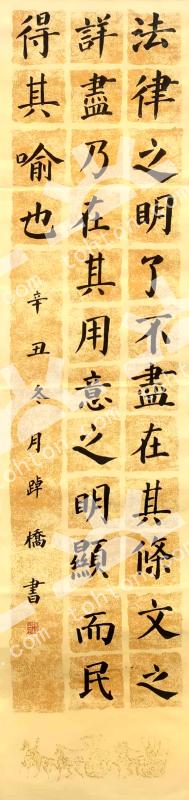 法律之明了不盡在其條文之
詳盡乃在其用意之明顯而民
得其喻也
辛丑冬月踔橋書